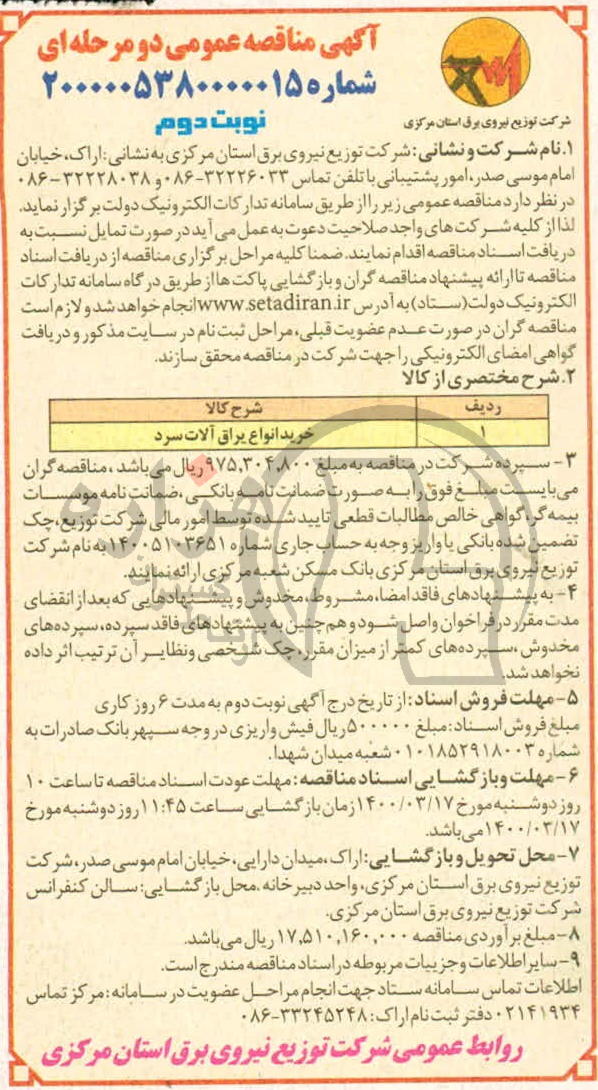 آگهی مناقصه عمومی دو مرحله ای
شماره ۲۰۰۰۰۰۵۳۸۰۰۰۰۰۱۵
نوبت دوم
شرکت توزیع نیروی برق استان مرکزی
۱. نام شرکت و نشانی: شرکت توزیع نیروی برق استان مرکزی به نشانی: اراک، خیابان
امام موسی صدر، امور پشتیبانی با تلفن تماس ۳۲۲۲۶۰۳۳-۰۸۶ و ۳۲۲۲۸۰۳۸-۰۸۶
در نظر دارد مناقصه عمومی زیر را از طریق سامانه تدارکات الکترونیک دولت برگزار نماید.
لذا از کلیه شرکت های واجد صلاحیت دعوت به عمل می آید در صورت تمایل نسبت به
دریافت اسناد مناقصه اقدام نمایند. ضمنا کلیه مراحل برگزاری مناقصه از دریافت اسناد
مناقصه تا ارائه پیشنهاد مناقصه گران و بازگشایی پاکت ها از طریق درگاه سامانه تدارکات
الکترونیک دولت (ستاد) به آدرس www.setadiran.ir انجام خواهد شد و لازم است
مناقصه گران در صورت عدم عضویت قبلی، مراحل ثبت نام در سایت مذکور و دریافت
گواهی امضای الکترونیکی را جهت شرکت در مناقصه محقق سازند.
۲. شرح مختصری از کالا
ردیف شرح کالا
۱ خرید انواع یراق آلات سرد
۳- سپرده شرکت در مناقصه به مبلغ ۹۷۵,۳۰۴,۸۰۰ ریال می باشد، مناقصه گران
می بایست مبلغ فوق را به صورت ضمانت نامه بانکی، ضمانت نامه موسسات
بیمه گر، گواهی خالص مطالبات قطعی تایید شده توسط امور مالی شرکت توزیع، چک
تضمین شده بانکی یا واریز وجه به حساب جاری شماره ۱۴۰۰۵۱۰۳۶۵۱ به نام شرکت
توزیع نیروی برق استان مرکزی بانک مسکن شعبه مرکزی ارائه نمایند.
۴- به پیشنهادهای فاقد امضا، مشروط، مخدوش و پیشنهادهایی که بعد از انقضای
مدت مقرر در فراخوان واصل شود و هم چنین به پیشنهادهای فاقد سپرده، سپرده های
مخدوش، سپرده های کمتر از میزان مقرر، چک شخصی و نظایر آن ترتیب اثر داده
نخواهد شد.
۵- مهلت فروش اسناد: از تاریخ درج آگهی نوبت دوم به مدت ۶ روز کاری
مبلغ فروش اسناد: مبلغ ۵۰۰۰۰۰ ریال فیش واریزی در وجه سپهر بانک صادرات به
شماره ۰۱۰۱۸۵۲۹۱۸۰۰۳ شعبه میدان شهدا.
۶- مهلت و بازگشایی اسناد مناقصه: مهلت عودت اسناد مناقصه تا ساعت ۱۰
روز دوشنبه مورخ ۱۴۰۰/۰۳/۱۷ زمان بازگشایی ساعت ۱۱:۴۵ روز دوشنبه مورخ
۱۴۰۰/۰۳/۱۷ می باشد.
۷- محل تحویل و بازگشایی: اراک، میدان دارایی، خیابان امام موسی صدر، شرکت
توزیع نیروی برق استان مرکزی، واحد دبیرخانه. محل بازگشایی: سالن کنفرانس
شرکت توزیع نیروی برق استان مرکزی.
۸- مبلغ برآوردی مناقصه ۱۷,۵۱۰,۱۶۰,۰۰۰ ریال می باشد.
۹- سایر اطلاعات و جزییات مربوطه در اسناد مناقصه مندرج است.
اطلاعات تماس سامانه ستاد جهت انجام مراحل عضویت در سامانه: مرکز تماس
۰۲۱۴۱۹۳۴ دفتر ثبت نام اراک: ۳۳۲۴۵۲۴۸-۰۸۶
روابط عمومی شرکت توزیع نیروی برق استان مرکزی